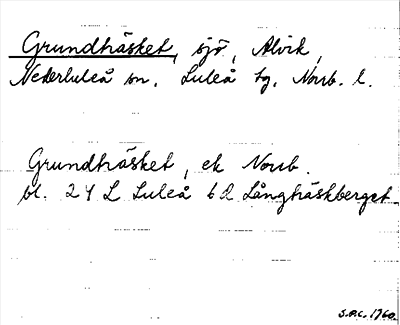 Grundträsket, sjö, Alvik,
Nederluleå sn. Luleå tg. Norrb. l.
Grundträsket, ek Norrb.
bl. 24 L Luleå 6 d Långträskberget
S.P.C. 1760.